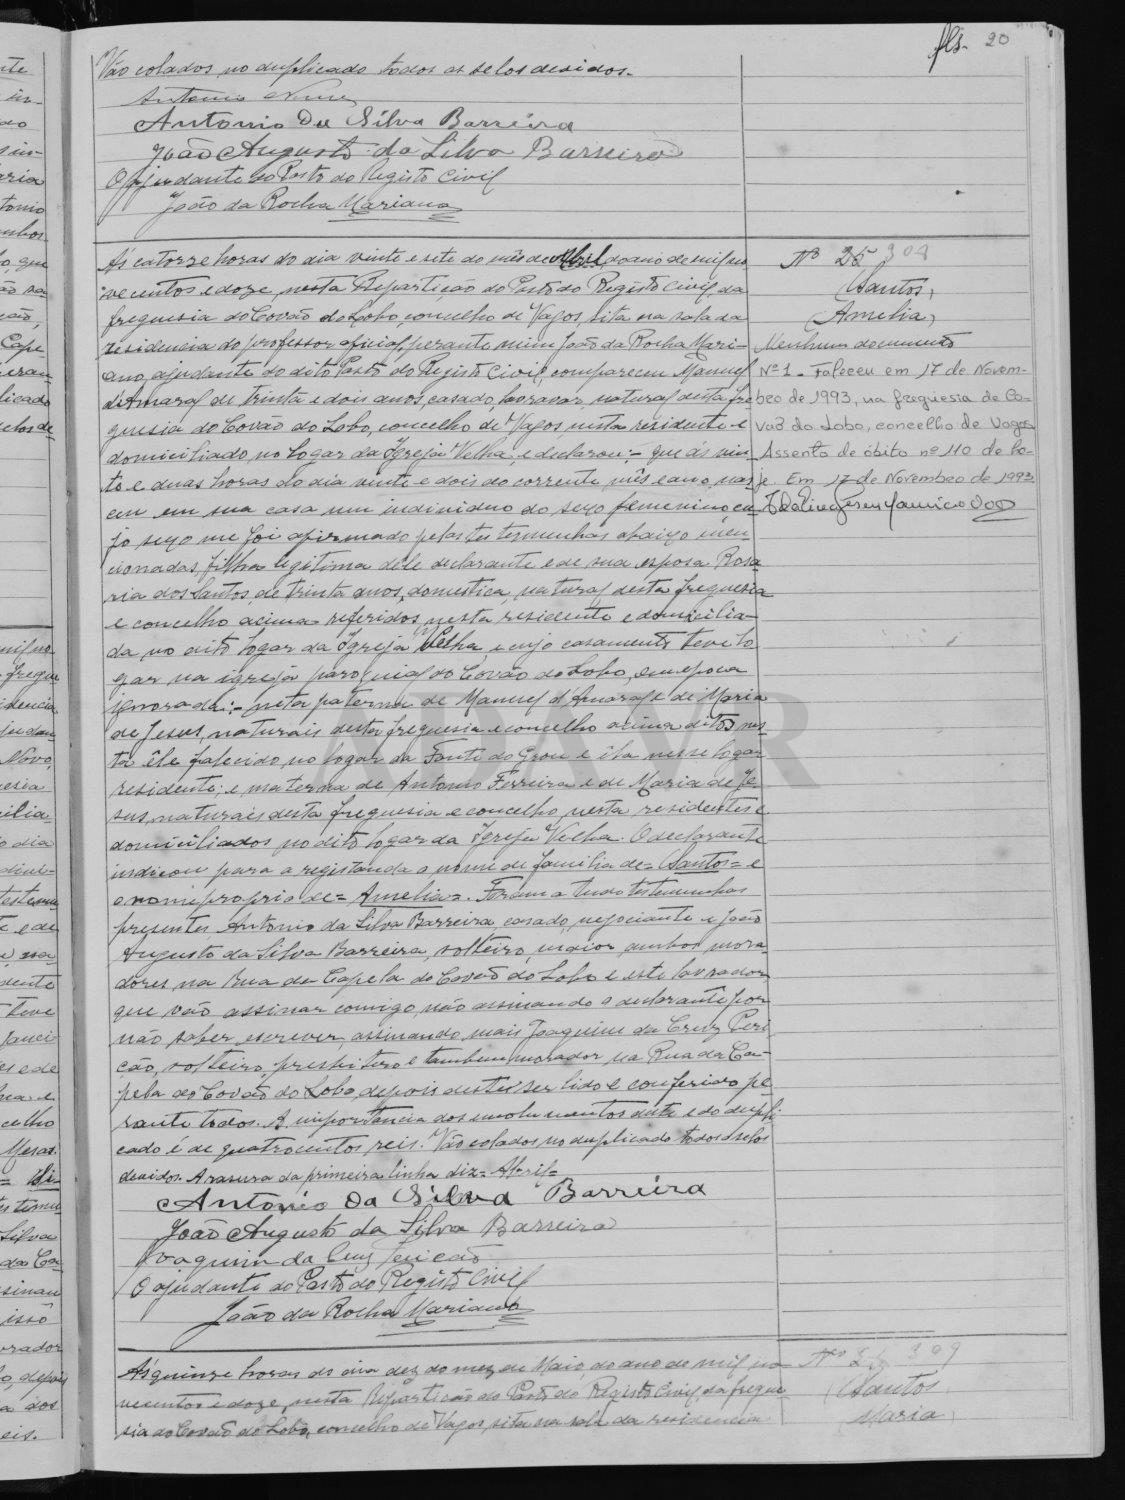 fls. 20
Vão colados no duplicado todos os selos devidos.
Antonio
Antonio Da Silva Barreira
João Augusto da Silva Barreira
O ajudante do Posto do Registo Civil
João da Rocha Mariano
Ás catorze horas do dia vinte e sete do mês de Abril do ano de mil no-
vecentos e doze, nesta Repartição do Posto do Registo Civil, da
freguesia do Covão do Lobo, concelho de Vagos, sita na sala da
residencia do professor oficial, perante mim João da Rocha Mari-
ano, ajudante do dito Posto do Registo Civil, compareceu Manuel
d'Amaral de trinta e dois anos, casado, lavrador, natural desta fre-
guesia do Covão do Lobo, concelho de Vagos, nesta residente e
domiciliado no logar da Igreja Velha, e declarou: - que ás vin-
te e duas horas do dia vinte e dois do corrente mês e ano, nas-
ceu em sua casa um individuo do sexo femenino cu-
jo sexo me foi afirmado pelas testemunhas abaixo men-
cionadas, filha legitima dele declarante e de sua esposa Rosa-
ria dos Santos, de trinta anos, domestica, natural desta freguesia
e concelho acima referidos, nesta residente e domicilia-
da no dito logar da Igreja Velha e cujo casamento teve lo-
gar na igreja paroquial do Covão do Lobo, em epoca
ignorada: - neta paterna de Manuel d'Amaral e de Maria
de Jesus, naturais desta freguesia e concelho acima ditos, nes-
ta êle falecido no logar da Fonte do Grou e éla nesse logar
residente; e materna de Antonio Ferreira e de Maria de Je-
sus, naturais desta freguesia e concelho, nesta residentes e
domiciliados no dito logar da Igreja Velha. O declarante
indicou para a registanda o nome de familia de = Santos = e
o nome proprio de = Amelia =. Foram a tudo testemunhas
presentes Antonio da Silva Barreira, casado, negociante e João
Augusto da Silva Barreira, solteiro, maior, ambos mora-
dores na Rua da Capela do Covão do Lobo e este lavrador
que vão assinar comigo, não assinando o declarante por
não saber escrever, assinando mais Joaquim da Cruz Peri-
cão, solteiro, presbitero e tambem morador na Rua da Ca-
pela do Covão do Lobo, depois deste ser lido e conferido pe-
rante todos. A importancia dos emolumentos deste e do dupli-
cado é de quatrocentos reis. Vão colados no duplicado todos os selos
devidos. A rasura da primeira linha diz = Abril =
Antonio Da Silva Barreira
João Augusto da Silva Barreira
Joaquim da Cruz Pericão
O ajudante do Posto do Registo Civil
João da Rocha Mariano
Nº 25 308
(Santos,
(Amelia,
Nenhum documento
Nº 1 - Faleceu em 17 de Novem-
bro de 1993, na freguesia de Co-
vão do Lobo, concelho de Vagos
Assento de óbito nº 110 de ho-
je. Em 17 de Novembro de 1993
Ás quinze horas do dia dez do mez de Maio, do ano de mil no-
vecentos e doze, nesta Repartição do Posto do Registo Civil, da fregue-
sia do Covão do Lobo, concelho de Vagos, sita na sala da residencia
Nº 309
(Santos
(Maria,
ADAVR